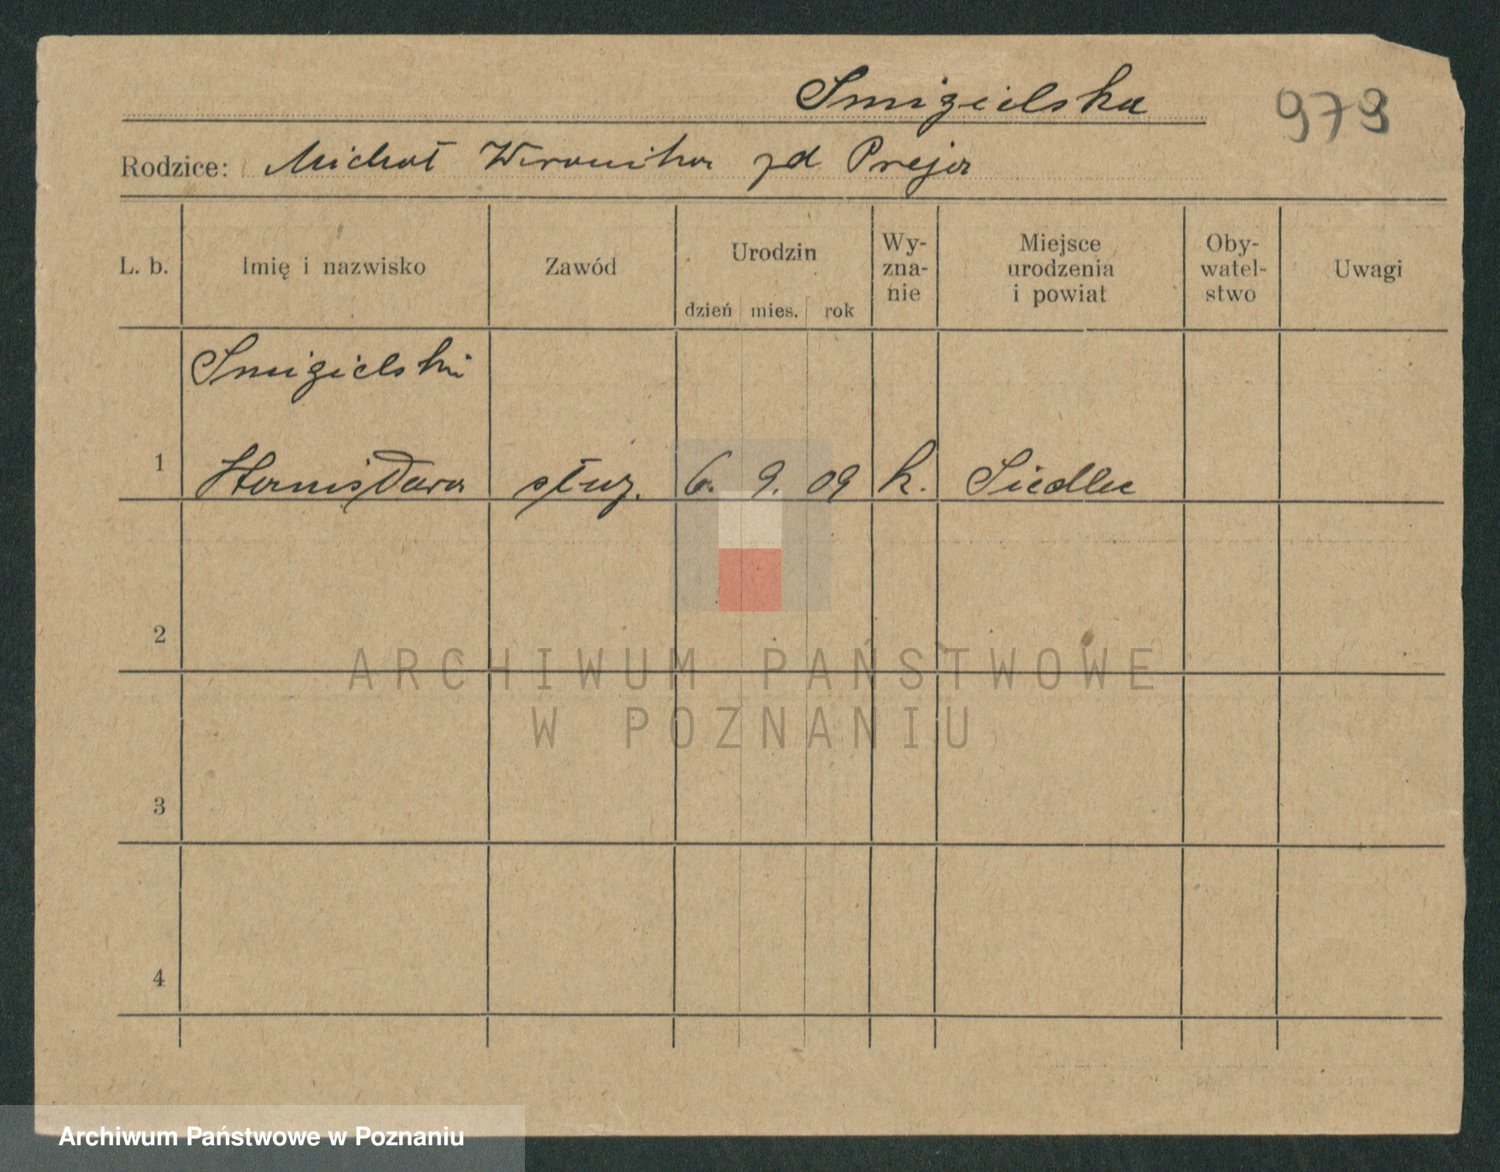 Smigielska
979
Rodzice: Michał Weronika zd Preja
L. b. Imię i nazwisko Zawód Urodzin dzień mies. rok Wy-zna-nie Miejsce urodzenia i powiat Oby-watel-stwo Uwagi
Smigielski
1 Stanisława służ. 6. 9. 09 k. Siedlec
2
3
4
ARCHIWUM PAŃSTWOWE
W POZNANIU
Archiwum Państwowe w Poznaniu